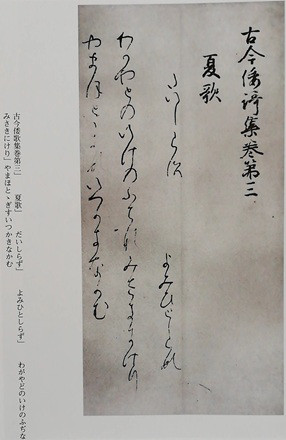 古今倭謌集巻第三
夏歌
たいしらす　よみひとしらす
わかやとのいけのふちなみさきにけり
やまほとゝきすいつかきなかむ
古今倭歌集巻第三」　夏歌」　だいしらず」　よみひとしらず」　わがやどのいけのふぢな
みさきにけり」やまほとゝぎすいつかきなかむ